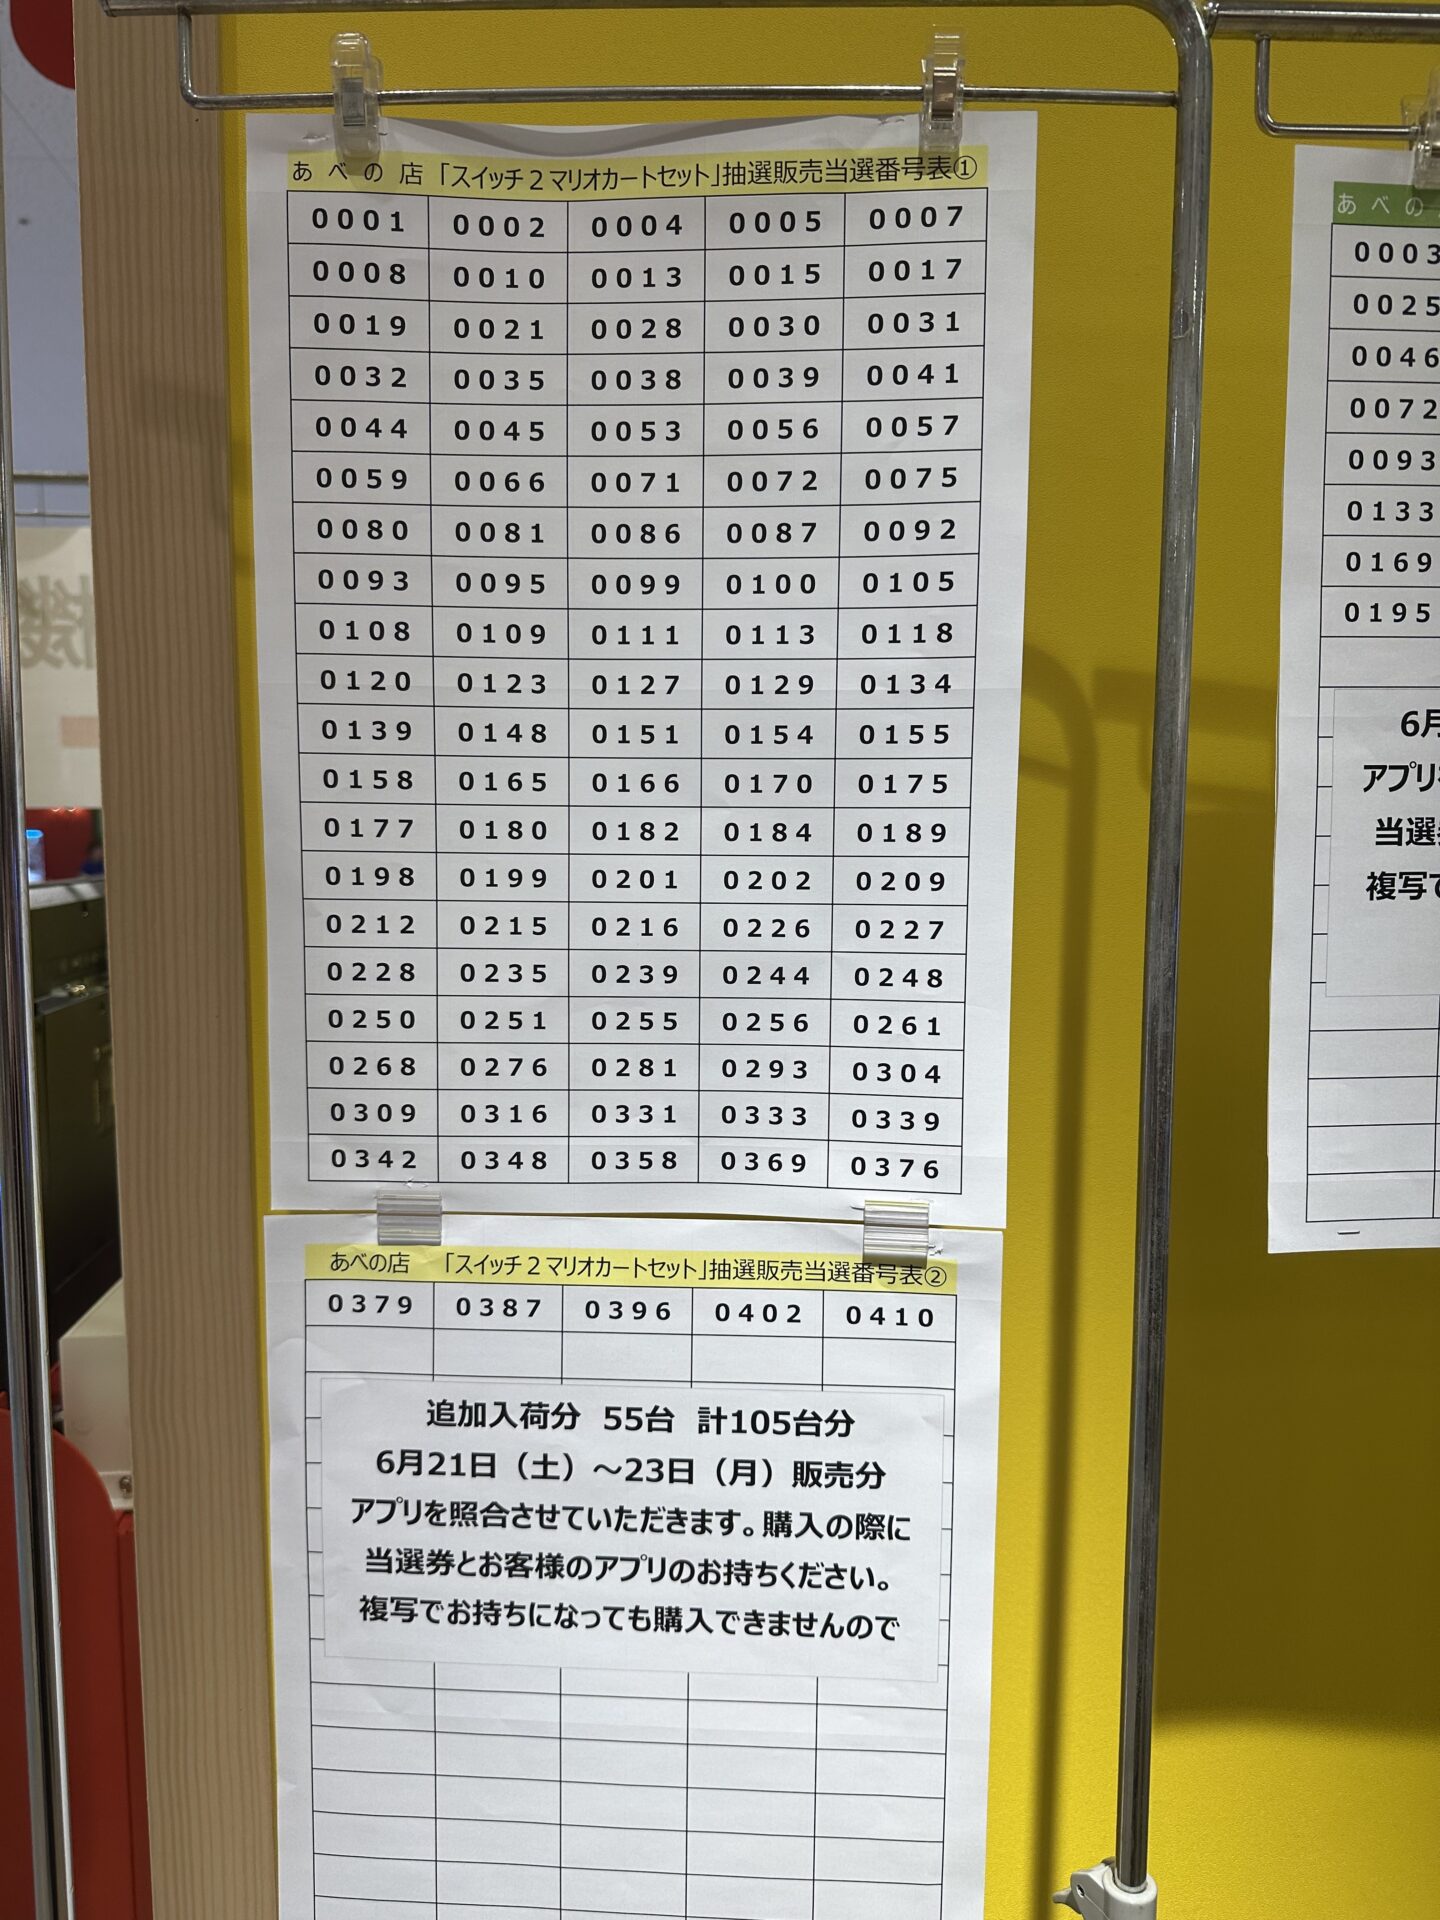 あべの店 「スイッチ2マリオカートセット」抽選販売当選番号表①
0001 0002 0004 0005 0007
0008 0010 0013 0015 0017
0019 0021 0028 0030 0031
0032 0035 0038 0039 0041
0044 0045 0053 0056 0057
0059 0066 0071 0072 0075
0080 0081 0086 0087 0092
0093 0095 0099 0100 0105
0108 0109 0111 0113 0118
0120 0123 0127 0129 0134
0139 0148 0151 0154 0155
0158 0165 0166 0170 0175
0177 0180 0182 0184 0189
0198 0199 0201 0202 0209
0212 0215 0216 0226 0227
0228 0235 0239 0244 0248
0250 0251 0255 0256 0261
0268 0276 0281 0293 0304
0309 0316 0331 0333 0339
0342 0348 0358 0369 0376
あべの店 「スイッチ2マリオカートセット」抽選販売当選番号表②
0379 0387 0396 0402 0410
追加入荷分 55台 計105台分
6月21日（土）～23日（月）販売分
アプリを照合させていただきます。購入の際に
当選券とお客様のアプリのお持ちください。
複写でお持ちになっても購入できませんので
あべの
0003
0025
0046
0072
0093
0133
0169
0195
6月
アプリを
当選
複写で